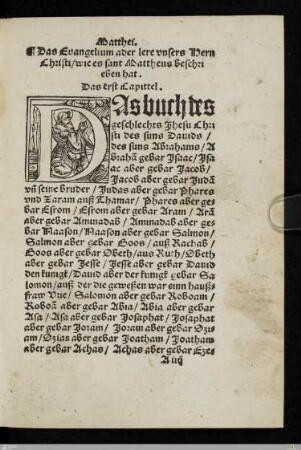 Matthei.
¶ Das Euangelium ader lere vnsers Hern
Christi/wie es sant Mattheus beschri
eben hat.
Das erst Capittel.
Das buch des
geschlechts Jhesu Chri
sti des suns Dauids /
des suns Abrahams / A
brahā gebar Isaac / Isa
ac aber gebar Jacob /
Jacob aber gebar Judā
vn̄ seine bruder / Judas aber gebar Phares
vnd Zaram auß Thamar / Phares aber ge
bar Esrom / Esrom aber gebar Aram / Arā
aber gebar Aminadab / Aminadab aber ge
bar Naason / Naason aber gebar Salmon /
Salmon aber gebar Boos / auß Rachab /
Boos aber gebar Obeth / auß Ruth / Obeth
aber gebar Jesse / Jesse aber gebar Dauid
den kunigk / Dauid aber der kunigk gebar Sa
lomon / auß der die geweßen war eins hauß
fraw Vrie / Salomon aber gebar Roboam /
Roboā aber gebar Abia / Abia aber gebar
Asa / Asa aber gebar Josaphat / Josaphat
aber gebar Joram / Joram aber gebar Ozi
am / Ozias aber gebar Joatham / Joatham
aber gebar Achas / Achas aber gebar Eze